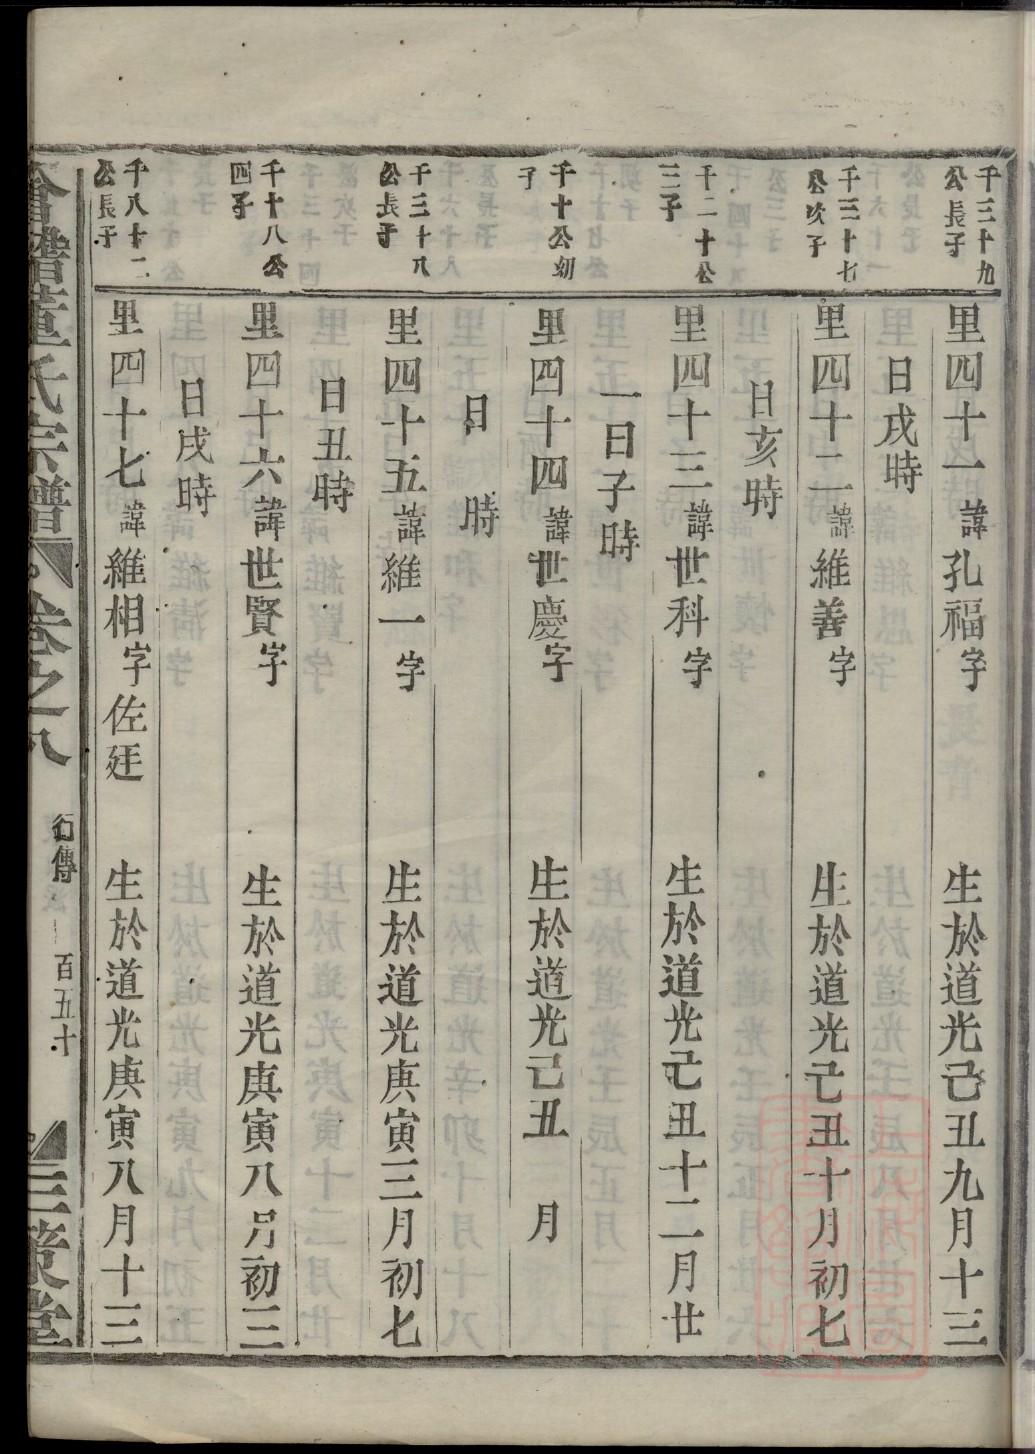 千三十九
公長子
里四十一諱孔福字 生於道光己丑九月十三
日戌時
千三十七
公次子
里四十二諱維善字 生於道光己丑十月初七
日亥時
千二十公
三子
里四十三諱世科字 生於道光己丑十二月廿
一日子時
千十公朔
子
里四十四諱世慶字 生於道光己丑 月
日 時
千三十八
公長子
里四十五諱維一字 生於道光庚寅三月初七
日丑時
千十八公
四子
里四十六諱世賢字 生於道光庚寅八月初三
日戌時
千八十二
公長子
里四十七諱維相字佐廷 生於道光庚寅八月十三
會稽董氏宗譜 卷之八 行傳 百五十 三策堂